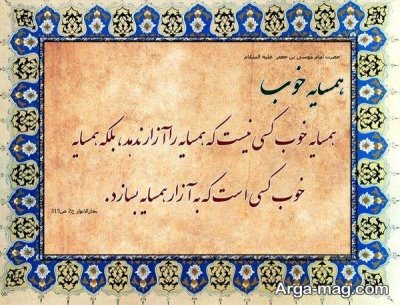 حضرت امام موسی بن جعفر علیه السلام
همسایه خوب
همسایه خوب کسی نیست که همسایه را آزار ندهد، بلکه همسایه
خوب کسی است که به آزار همسایه بسازد.
بحارالانوار ج7 ص315
Arga-mag.com